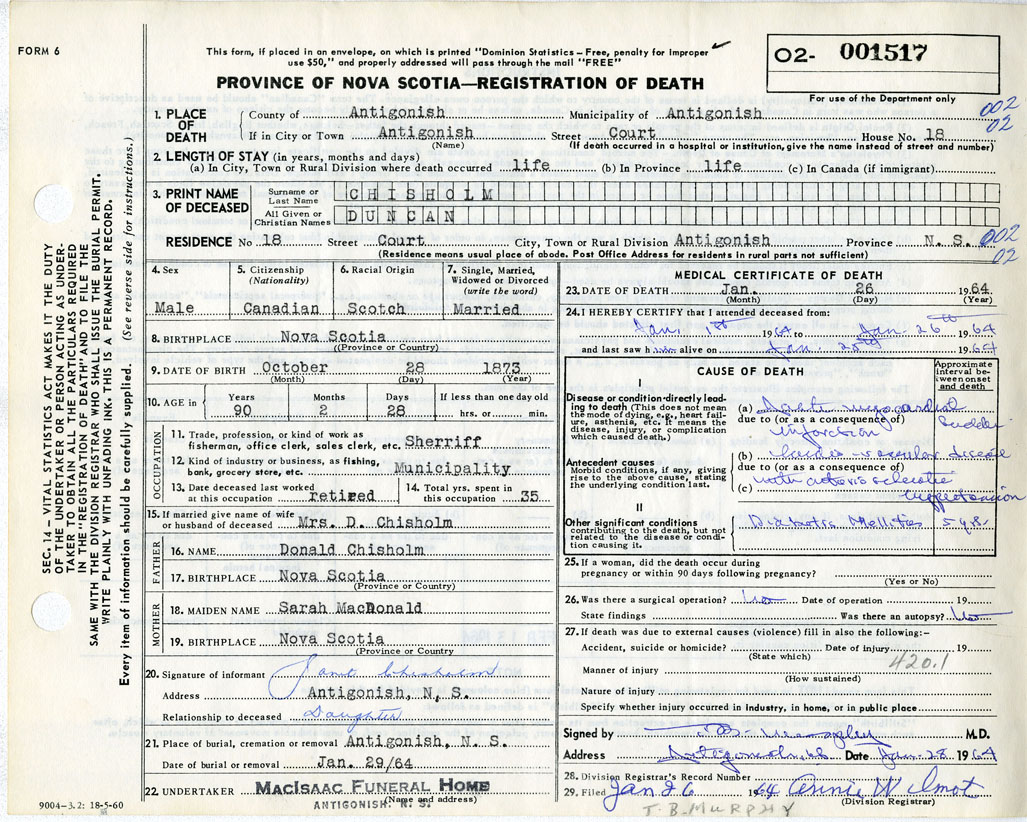 FORM 6
This form, if placed in an envelope, on which is printed "Dominion Statistics – Free, penalty for improper
use $50," and properly addressed will pass through the mail "FREE"
PROVINCE OF NOVA SCOTIA—REGISTRATION OF DEATH
O2- 001517
For use of the Department only
1. PLACE OF DEATH
County of Antigonish Municipality of Antigonish 002
If in City or Town Antigonish Street Court House No. 18 02
(Name) (If death occurred in a hospital or institution, give the name instead of street and number)
2. LENGTH OF STAY (in years, months and days)
(a) In City, Town or Rural Division where death occurred life (b) In Province life (c) In Canada (if immigrant)
3. PRINT NAME OF DECEASED
Surname or Last Name CHISHOLM
All Given or Christian Names DUNCAN
RESIDENCE No 18 Street Court City, Town or Rural Division Antigonish Province N. S. 002
(Residence means usual place of abode. Post Office Address for residents in rural parts not sufficient) 02
4. Sex
Male
5. Citizenship
(Nationality)
Canadian
6. Racial Origin
Scotch
7. Single, Married,
Widowed or Divorced
(write the word)
Married
8. BIRTHPLACE Nova Scotia
(Province or Country)
9. DATE OF BIRTH October 28 1873
(Month) (Day) (Year)
10. AGE in
Years Months Days If less than one day old
90 2 28 hrs. or min.
OCCUPATION
11. Trade, profession, or kind of work as
fisherman, office clerk, sales clerk, etc. Sherriff
12. Kind of industry or business, as fishing,
bank, grocery store, etc. Municipality
13. Date deceased last worked
at this occupation retired
14. Total yrs. spent in
this occupation 35
15. If married give name of wife
or husband of deceased Mrs. D. Chisholm
FATHER
16. NAME Donald Chisholm
17. BIRTHPLACE Nova Scotia
(Province or Country)
MOTHER
18. MAIDEN NAME Sarah MacDonald
19. BIRTHPLACE Nova Scotia
(Province or Country)
20. Signature of informant Chisholm
Address Antigonish, N. S.
Relationship to deceased Daughter
21. Place of burial, cremation or removal Antigonish, N. S.
Date of burial or removal Jan. 29/64
22. UNDERTAKER MACISAAC FUNERAL HOME
(Name and address)
ANTIGONISH. N. S.
9004–3.2: 18-5-60
MEDICAL CERTIFICATE OF DEATH
23. DATE OF DEATH Jan. 26 1964
(Month) (Day) (Year)
24. I HEREBY CERTIFY that I attended deceased from:
Jan. 1st 1964 to Jan. 26th 1964
and last saw him alive on Jan. 25th 1964
CAUSE OF DEATH
Approximate
interval be-
tween onset
and death
I
Disease or condition directly lead-
ing to death (This does not mean
the mode of dying, e.g., heart fail-
ure, asthenia, etc. It means the
disease, injury, or complication
which caused death.)
(a) Acute myocardial
due to (or as a consequence of) Sudden
infarction
Antecedent causes
Morbid conditions, if any, giving
rise to the above cause, stating
the underlying condition last.
(b) Cardio-vascular disease
due to (or as a consequence of)
(c) with arteriosclerotic
hypertension
II
Other significant conditions
contributing to the death, but not
related to the disease or condi-
tion causing it.
Diabetes Mellitus 5 yrs.
25. If a woman, did the death occur during
pregnancy or within 90 days following pregnancy?
(Yes or No)
26. Was there a surgical operation? no Date of operation 19
State findings Was there an autopsy? no
27. If death was due to external causes (violence) fill in also the following:–
Accident, suicide or homicide? Date of injury 19
(State which)
420.1
Manner of injury
(How sustained)
Nature of injury
Specify whether injury occurred in Industry, in home, or in public place
Signed by M.D.
Address Antigonish, NS Date Jan. 28 1964
28. Division Registrar's Record Number
29. Filed Jan 26 1964 Annie W Wilmot
(Division Registrar)
T.B. MURPHY
SEC. 14 – VITAL STATISTICS ACT MAKES IT THE DUTY
OF THE UNDERTAKER OR PERSON ACTING AS UNDER-
TAKER TO OBTAIN ALL THE PARTICULARS REQUIRED
IN THE "REGISTRATION OF DEATH" AND TO FILE THE
SAME WITH THE DIVISION REGISTRAR WHO SHALL ISSUE THE BURIAL PERMIT.
WRITE PLAINLY WITH UNFADING INK. THIS IS A PERMANENT RECORD.
Every item of information should be carefully supplied. (See reverse side for instructions.)